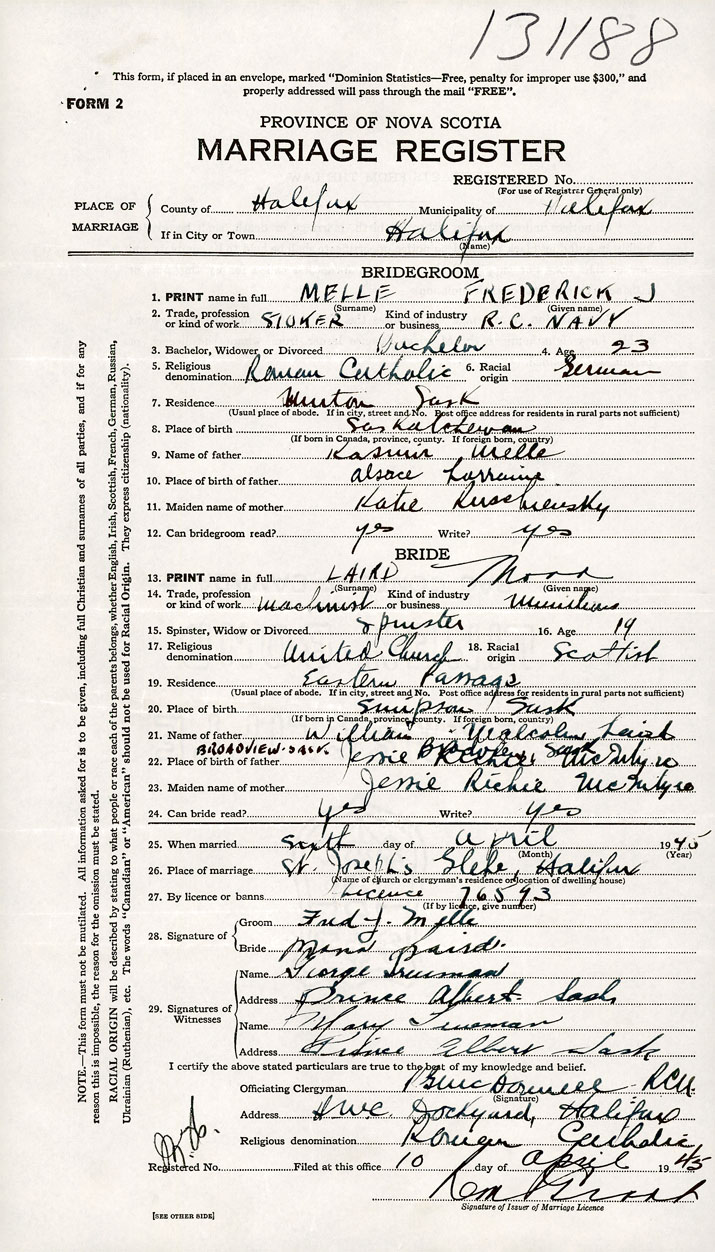 131188
This form, if placed in an envelope, marked "Dominion Statistics—Free, penalty for improper use $300," and
properly addressed will pass through the mail "FREE".
FORM 2
PROVINCE OF NOVA SCOTIA
MARRIAGE REGISTER
REGISTERED No.
(For use of Registrar General only)
PLACE OF MARRIAGE
County of Halifax Municipality of Halifax
If in City or Town Halifax
(Name)
BRIDEGROOM
1. PRINT name in full MELLE FREDERICK J
(Surname) (Given name)
2. Trade, profession or kind of work STOKER Kind of industry or business R.C. NAVY
3. Bachelor, Widower or Divorced Bachelor 4. Age 23
5. Religious denomination Roman Catholic 6. Racial origin German
7. Residence Sask
(Usual place of abode. If in city, street and No. Post office address for residents in rural parts not sufficient)
8. Place of birth Saskatchewan
(If born in Canada, province, county. If foreign born, country)
9. Name of father Kasmir Melle
10. Place of birth of father Alsace Lorraine
11. Maiden name of mother Katie
12. Can bridegroom read? yes Write? yes
BRIDE
13. PRINT name in full LAIRD Mona
(Surname) (Given name)
14. Trade, profession or kind of work Machinist Kind of industry or business Munitions
15. Spinster, Widow or Divorced Spinster 16. Age 19
17. Religious denomination United Church 18. Racial origin Scottish
19. Residence Eastern Passage
(Usual place of abode. If in city, street and No. Post office address for residents in rural parts not sufficient)
20. Place of birth Simpson Sask
(If born in Canada, province, county. If foreign born, country)
21. Name of father William Malcolm Laird
BROADVIEW-SASK. Broadview Sask
22. Place of birth of father Jessie Richie McIntyre
23. Maiden name of mother Jessie Richie McIntyre
24. Can bride read? yes Write? yes
25. When married sixth day of April 1945
(Month) (Year)
26. Place of marriage St. Joseph's Glebe, Halifax
(Name of church or clergyman's residence or location of dwelling house)
27. By licence or banns Licence 76593
(If by licence, give number)
28. Signature of
Groom Fred J. Melle
Bride Mona Laird
29. Signatures of Witnesses
Name George Trueman
Address Prince Albert Sask
Name Mary Trueman
Address Prince Albert Sask
I certify the above stated particulars are true to the best of my knowledge and belief.
Officiating Clergyman
(Signature)
Address Dockyard, Halifax
Religious denomination Roman Catholic
Registered No. Filed at this office 10 day of April 1945
Signature of Issuer of Marriage Licence
[SEE OTHER SIDE]
NOTE.—This form must not be mutilated. All information asked for is to be given, including full Christian and surnames of all parties, and if for any
reason this is impossible, the reason for the omission must be stated.
RACIAL ORIGIN will be described by stating to what people or race each of the parents belongs, whether English, Irish, Scottish, French, German, Russian,
Ukrainian (Ruthenian), etc. The words "Canadian" or "American" should not be used for Racial Origin. They express citizenship (nationality).